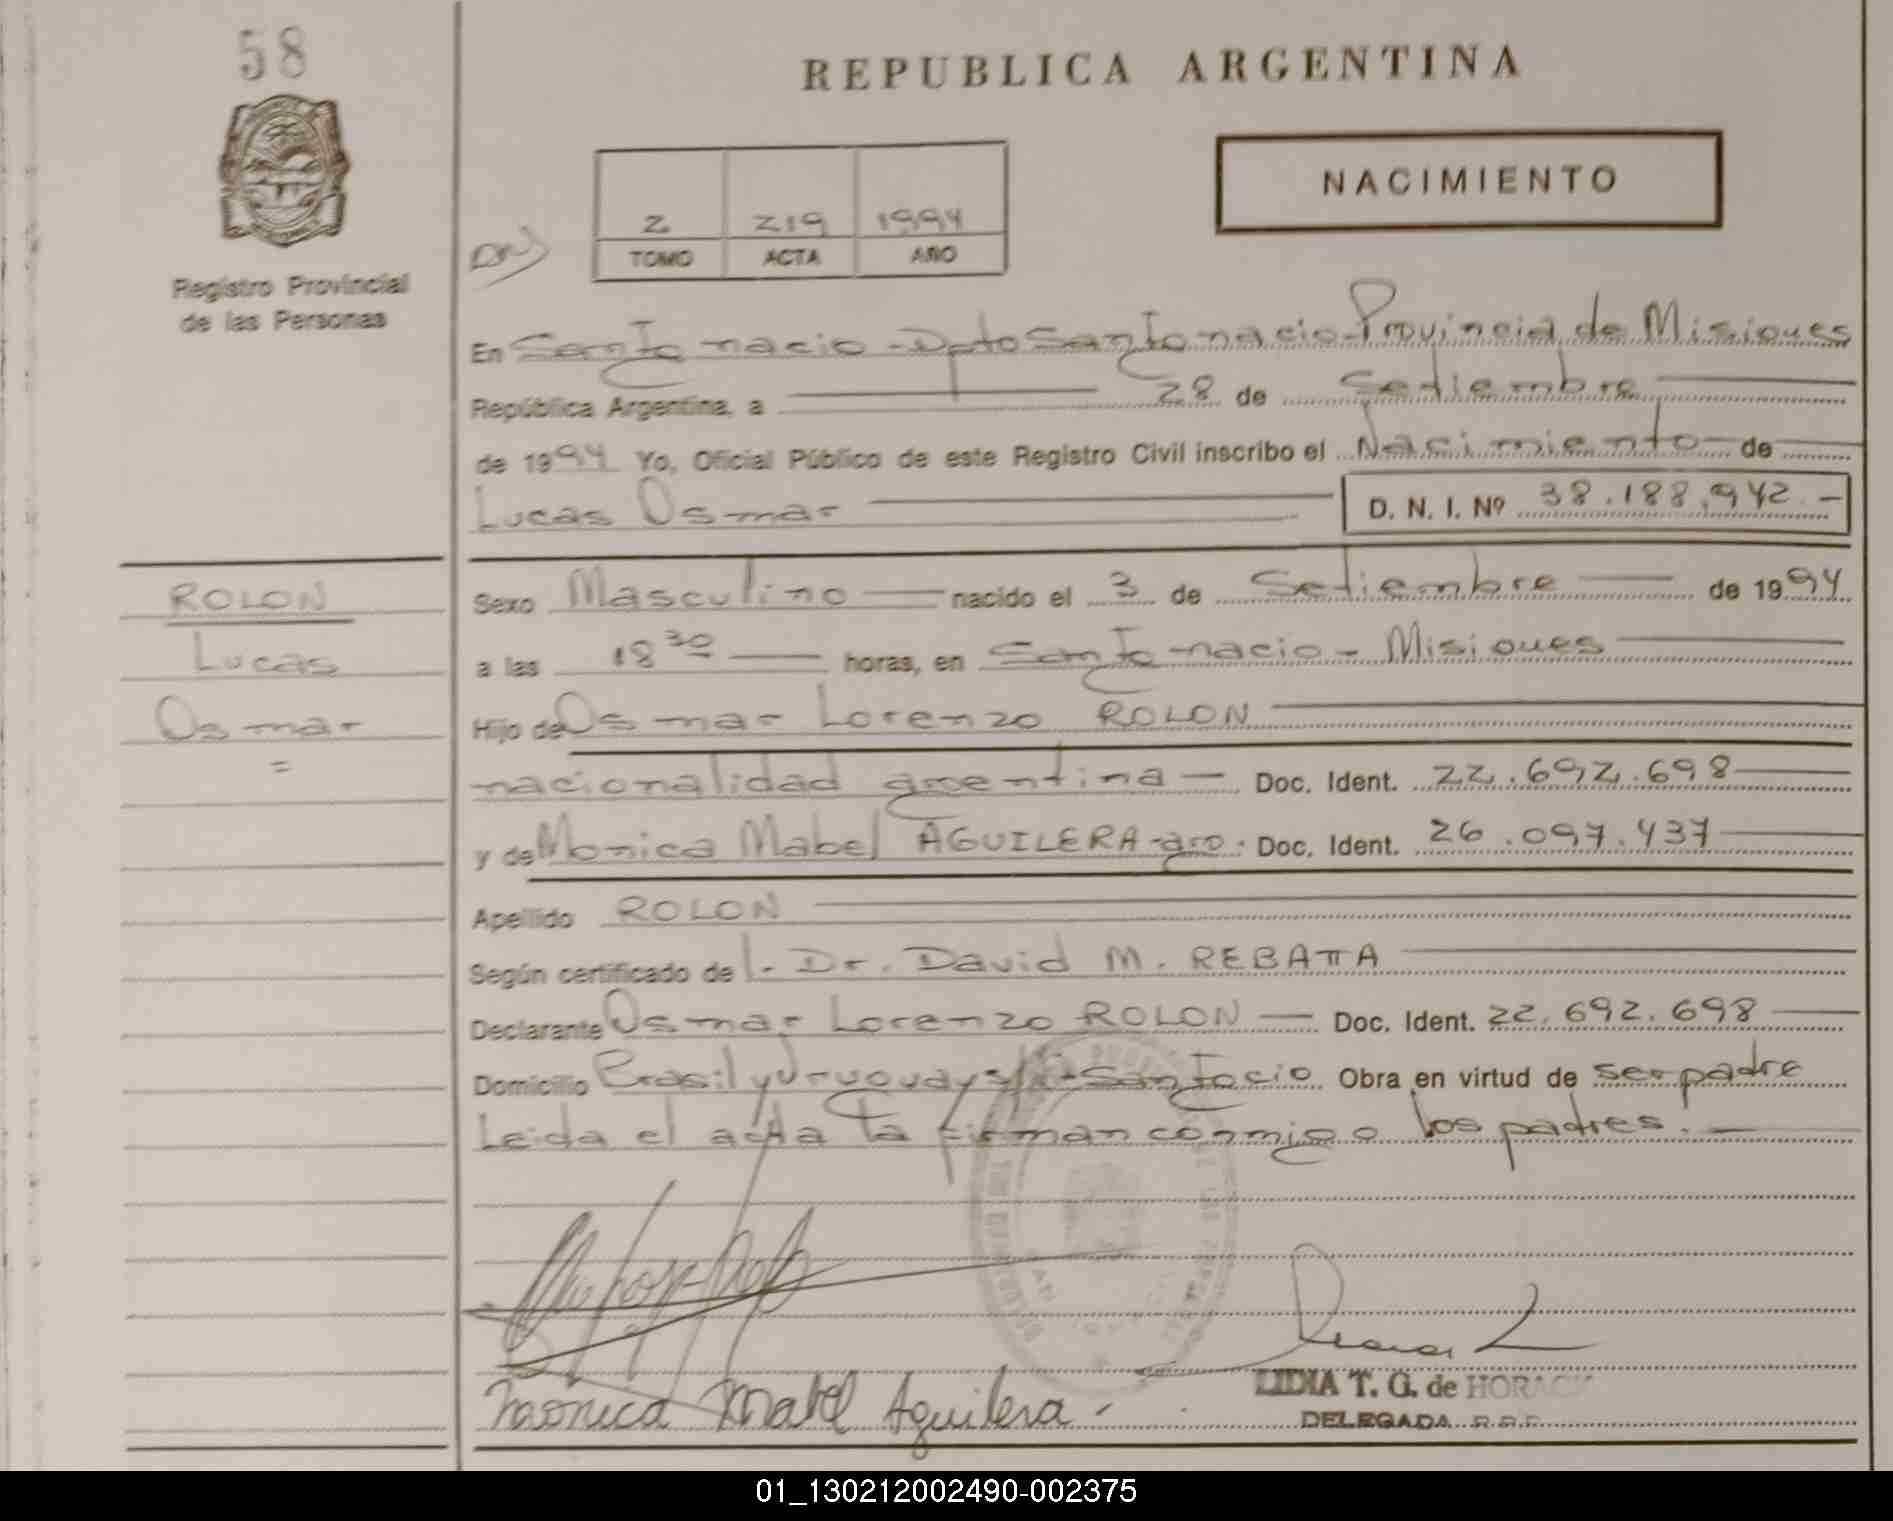 58
REPUBLICA ARGENTINA
NACIMIENTO
2 219 1994
TOMO ACTA AÑO
Registro Provincial
de las Personas
En San Ignacio - Dpto San Ignacio - Provincia de Misiones
República Argentina, a 28 de Setiembre
de 1994 Yo, Oficial Público de este Registro Civil inscribo el Nacimiento de
Lucas Osmar D. N. I. Nº 38.188.942.-
ROLON
Lucas
Osmar
=
Sexo Masculino nacido el 3 de Setiembre de 1994
a las 18 30 horas, en San Ignacio - Misiones
Hijo de Osmar Lorenzo ROLON
nacionalidad argentina Doc. Ident. 22.692.698
y de Monica Mabel AGUILERA - arg. Doc. Ident. 26.097.437
Apellido ROLON
Según certificado de l. Dr. David M. REBATTA
Declarante Osmar Lorenzo ROLON Doc. Ident. 22.692.698
Domicilio Brasil y Uruguay Obra en virtud de ser padre
Leida el acta la firman conmigo los padres.
Monica Mabel Aguilera
LIDIA T. G. de HORACK
DELEGADA
01_130212002490-002375